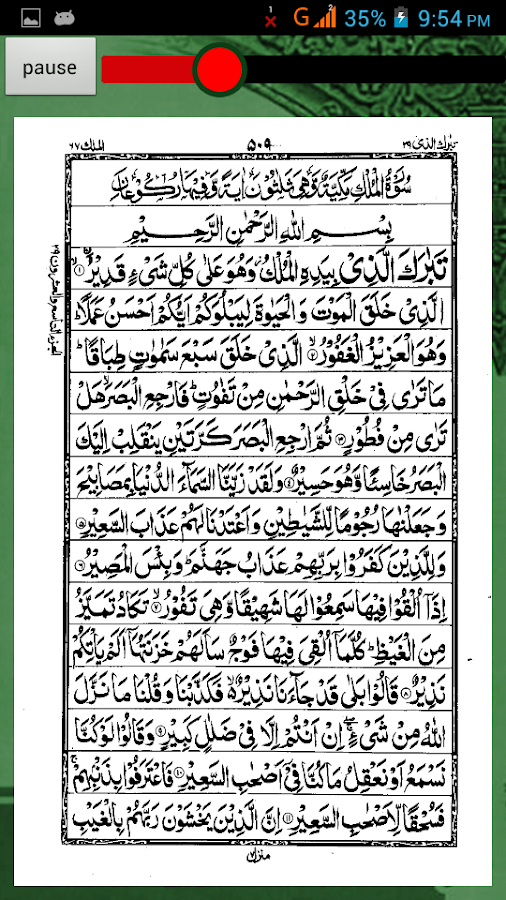 1 2 G 35% 9:54 PM
pause
تبٰرك الذی ۲۹ ۵۰۹ الملك ۶۷
سُوْرَةُ الْمُلْكِ مَكِّيَّةٌ وَّهِیَ ثَلٰثُوْنَ اٰيَةً وَّفِيْهَا رُكُوْعَانِ
بِسْمِ اللهِ الرَّحْمٰنِ الرَّحِيْمِ
تَبٰرَكَ الَّذِیْ بِيَدِهِ الْمُلْكُ وَهُوَ عَلٰى كُلِّ شَیْءٍ قَدِيْرُۨ ۙ﴿۱﴾
الَّذِیْ خَلَقَ الْمَوْتَ وَالْحَيٰوةَ لِيَبْلُوَكُمْ اَيُّكُمْ اَحْسَنُ عَمَلًا ؕ
وَهُوَ الْعَزِيْزُ الْغَفُوْرُ ۙ﴿۲﴾ الَّذِیْ خَلَقَ سَبْعَ سَمٰوٰتٍ طِبَاقًا ؕ
مَا تَرٰى فِیْ خَلْقِ الرَّحْمٰنِ مِنْ تَفٰوُتٍ ؕ فَارْجِعِ الْبَصَرَ ۙ هَلْ
تَرٰى مِنْ فُطُوْرٍ ﴿۳﴾ ثُمَّ ارْجِعِ الْبَصَرَ كَرَّتَيْنِ يَنْقَلِبْ اِلَيْكَ
الْبَصَرُ خَاسِئًا وَّهُوَ حَسِيْرٌ ﴿۴﴾ وَلَقَدْ زَيَّنَّا السَّمَآءَ الدُّنْيَا بِمَصَابِيْحَ
وَجَعَلْنٰهَا رُجُوْمًا لِّلشَّيٰطِيْنِ وَاَعْتَدْنَا لَهُمْ عَذَابَ السَّعِيْرِ ﴿۵﴾
وَلِلَّذِيْنَ كَفَرُوْا بِرَبِّهِمْ عَذَابُ جَهَنَّمَ ؕ وَبِئْسَ الْمَصِيْرُ ﴿۶﴾
اِذَاۤ اُلْقُوْا فِيْهَا سَمِعُوْا لَهَا شَهِيْقًا وَّهِیَ تَفُوْرُ ۙ﴿۷﴾ تَكَادُ تَمَيَّزُ
مِنَ الْغَيْظِ ؕ كُلَّمَاۤ اُلْقِیَ فِيْهَا فَوْجٌ سَاَلَهُمْ خَزَنَتُهَاۤ اَلَمْ يَاْتِكُمْ
نَذِيْرٌ ﴿۸﴾ قَالُوْا بَلٰى قَدْ جَآءَنَا نَذِيْرٌ ۙ فَكَذَّبْنَا وَقُلْنَا مَا نَزَّلَ
اللهُ مِنْ شَیْءٍ ۚۖ اِنْ اَنْتُمْ اِلَّا فِیْ ضَلٰلٍ كَبِيْرٍ ﴿۹﴾ وَقَالُوْا لَوْ كُنَّا
نَسْمَعُ اَوْ نَعْقِلُ مَا كُنَّا فِیْۤ اَصْحٰبِ السَّعِيْرِ ﴿۱۰﴾ فَاعْتَرَفُوْا بِذَنْۢبِهِمْ ۚ
فَسُحْقًا لِّاَصْحٰبِ السَّعِيْرِ ﴿۱۱﴾ اِنَّ الَّذِيْنَ يَخْشَوْنَ رَبَّهُمْ بِالْغَيْبِ
منزل